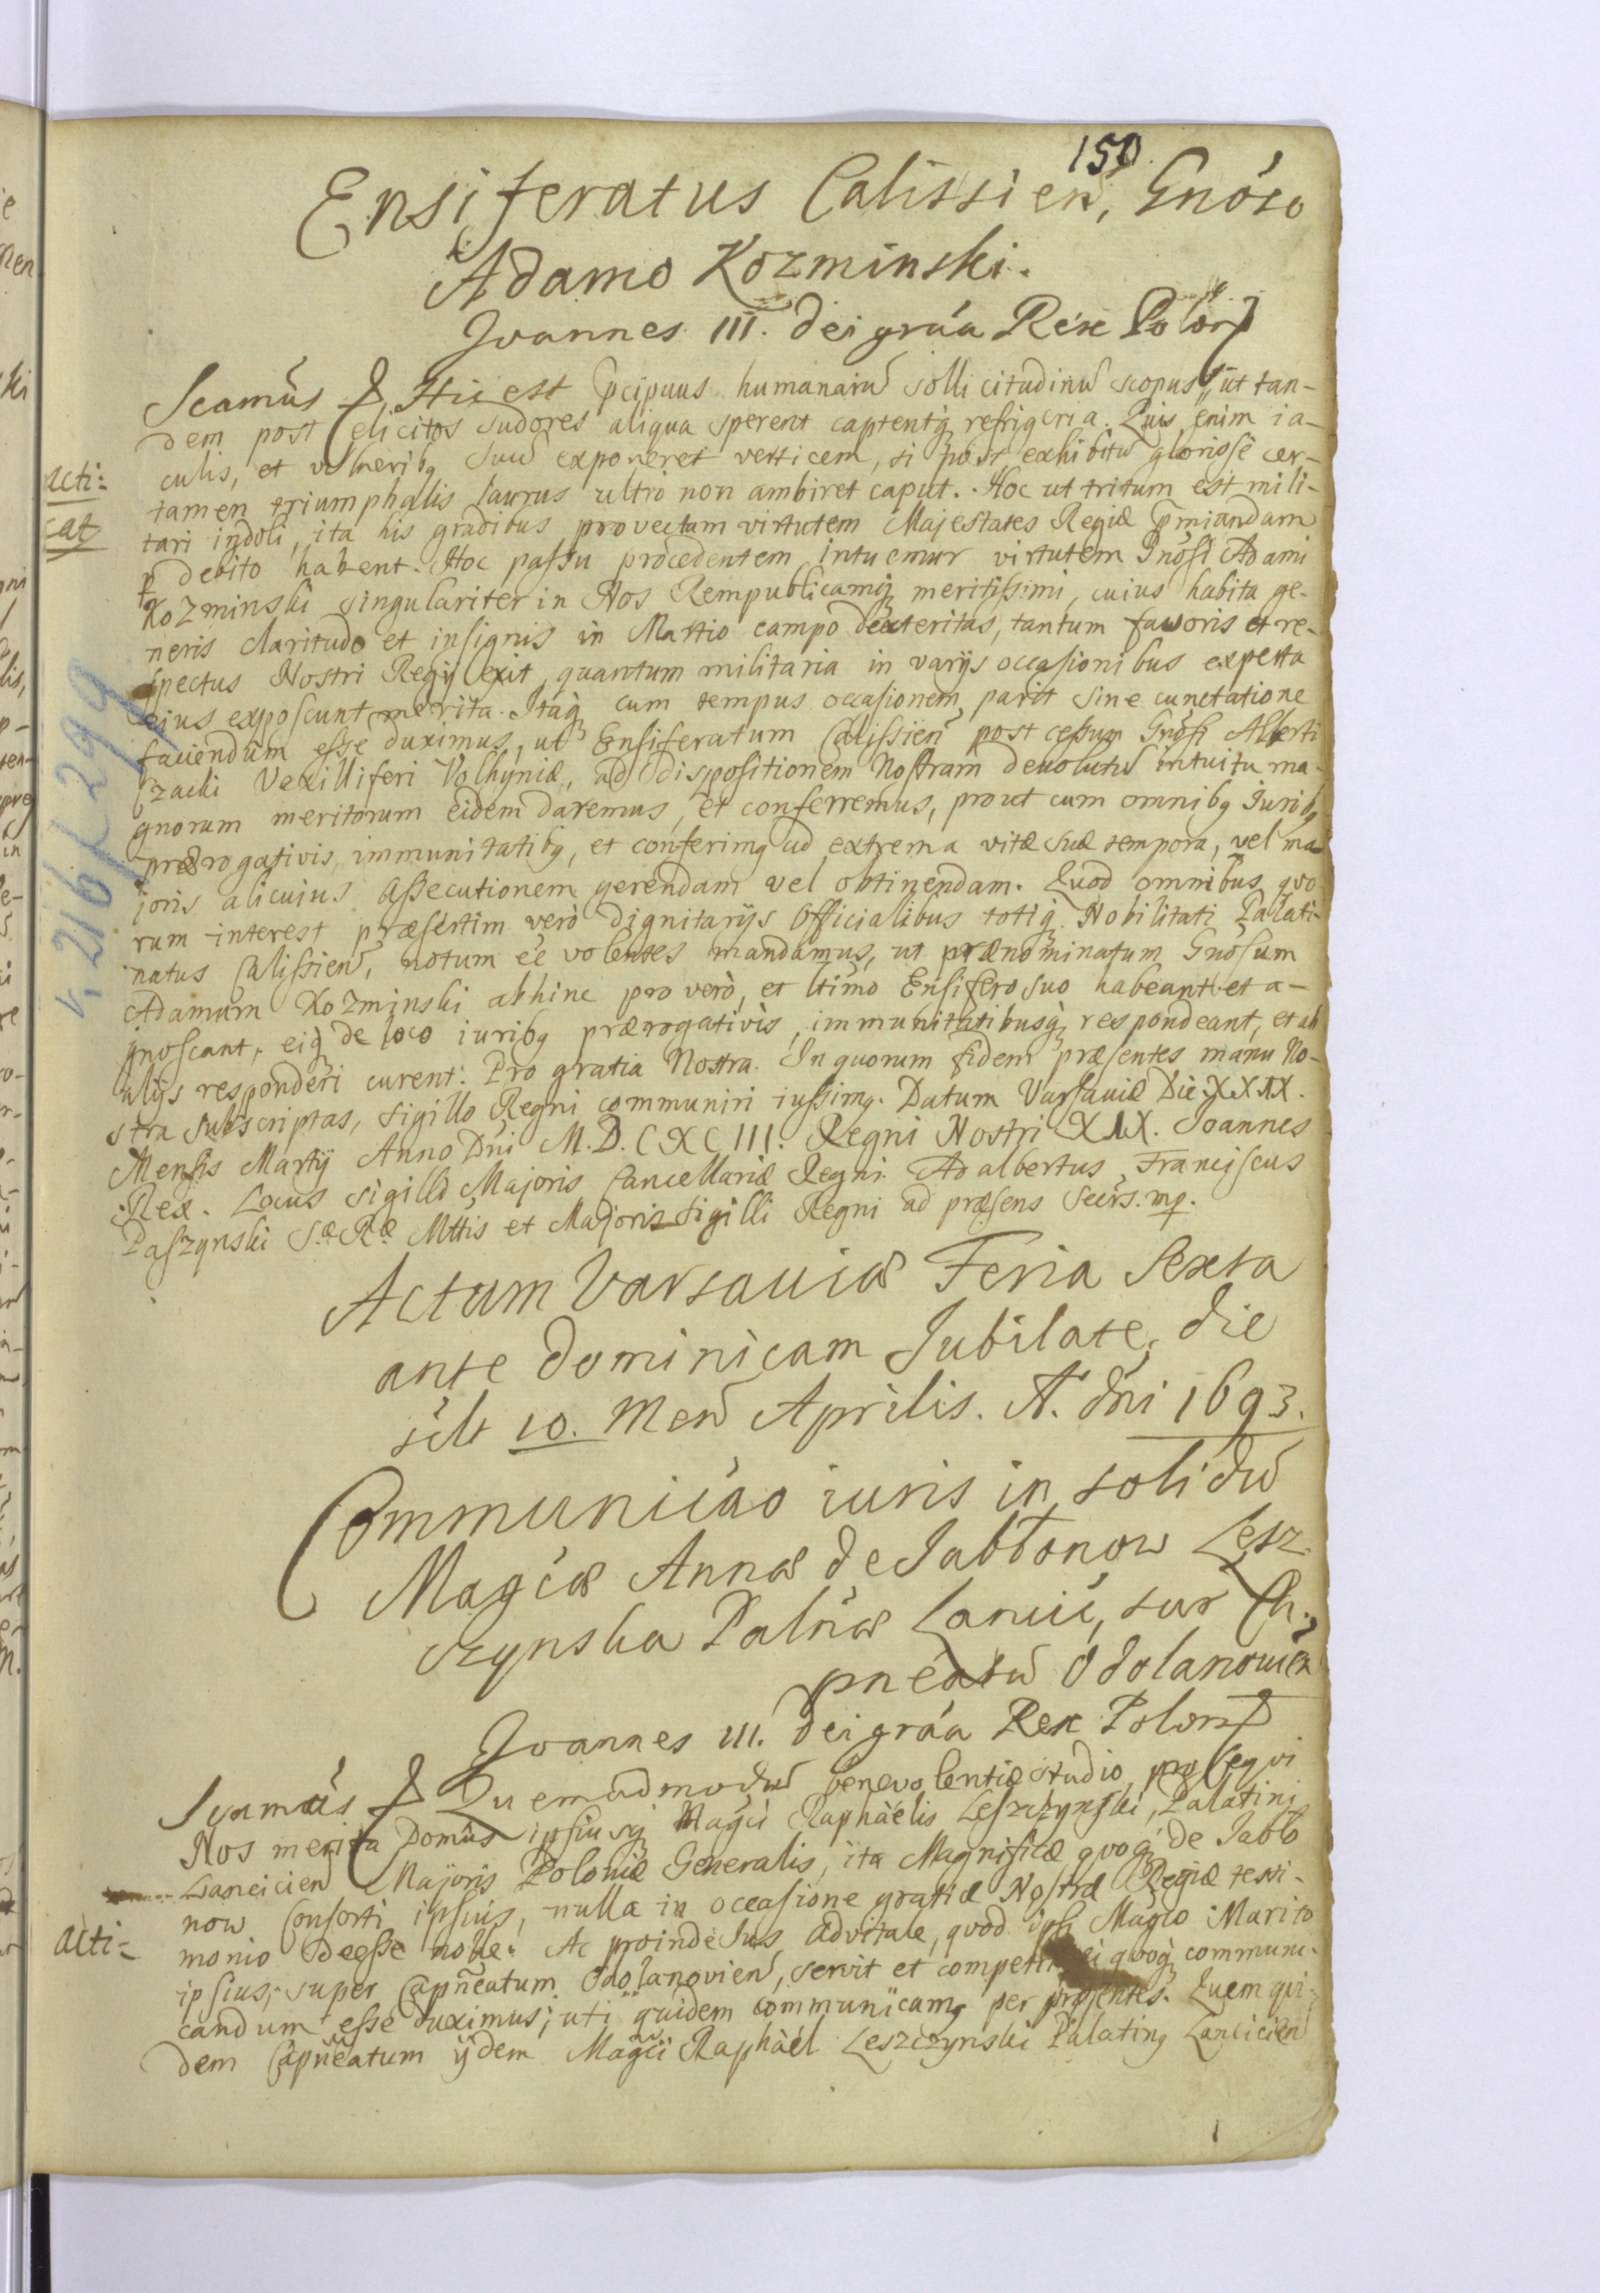 150.
Ensiferatus Calissien, Gnóso
Adamo Kozminski.
Joannes III. Dei gráa Rex Polor
Scamus & Hic est pcipuus humanarū sollicitudinū scopus, ut tan-
dem post elicitos sudores aliqua sperent captentq refrigeria. Quis enim ia-
culis, et vulneribq suū exponeret verticem, si post exhibitū gloriose cer-
tamen triumphalis laurus ultro non ambiret caput. Hoc ut tritum est mili-
tari indoli, ita his gradibus provectam virtutem Majestates Regiæ pmiandam
p debito habent. Hoc passu procedentem intuemur virtutem Gnosi Adami
Kozminski singulariter in Nos Rempublicamq meritissimi, cuius habita ge-
neris claritudo et insignis in Martio campo dexteritas, tantum favoris et re-
spectus Nostri Regij exit, quantum militaria in varijs occasionibus experta
eius exposcunt merita. Itaq cum tempus occasionem parit sine cunctatione
faciendum esse duximus, ut Ensiferatum Calissien post cessum Gnosi Alberti
Czacki Vexilliferi Volhyniæ, ad dispositionem Nostram devolutū intuitu ma-
gnorum meritorum eidem daremus, et conferremus, prout cum omnibq Juribq
prærogativis, immunitatibq, et conferimq ad extrema vitæ suæ tempora, vel ma-
joris alicuius assecutionem gerendam vel obtinendam. Quod omnibus quo
rum interest præsertim verò dignitarijs Officialibus totiq Nobilitati Palati-
natus Calissien, notum eè volentes mandamus, ut prænominatum Gnosum
Adamum Kozminski abhinc pro verò, et ltimo Ensifero suo habeant et a-
gnoscant, eiq de loco iuribq prærogativis, immunitatibusq respondeant, et ab
alijs responderi curent. Pro gratia Nostra. In quorum fidem præsentes manu No-
stra subscriptas, sigillo Regni communiri iussimq. Datum Varsaviæ Die XXXIX.
Mensis Martij Anno Dni M.D.CXCIII. Regni Nostri XIX. Joannes
Rex. Locus sigilli Majoris Cancellariæ Regni. Adalbertus Franciscus
Paszynski S.æ R.æ Mttis et Majoris sigilli Regni ad præsens Secrs. mp.
acti:
cat
Actum Varsaviæ Feria Sexta
ante Dominicam Jubilate, die
silt 10. Men Aprilis. A. dni 1693.
Communicáo iuris in solidū
Magcæ Annæ de Jabłonow Lesz-
czynska Palnæ Lancic, sur Ca-
pneatū Odolanowien
Joannes III. Dei gráa Rex Polor
Scamus & Quemadmodū benevolentiæ studio proseqvi
Nos merita Domus ipsiusq Magci Raphaëlis Leszczynski, Palatini
Lancicien Majoris Poloniæ Generalis, ita Magnificæ qvoq de Jabło
now Consorti ipsius, nulla in occasione gratiæ Nostræ Regiæ testi-
monio deesse nolle. Ac proinde Jus advitale, quod ipsi Magco Marito
ipsius, super Capneatum Odolanovien, servit et competit ei qvoq communi-
candum esse duximus; uti quidem communicamq per præsentes. Quem qui-
dem Capneatum ijdem Magci Raphaël Leszczynski Palatinq Lancicien
acti-